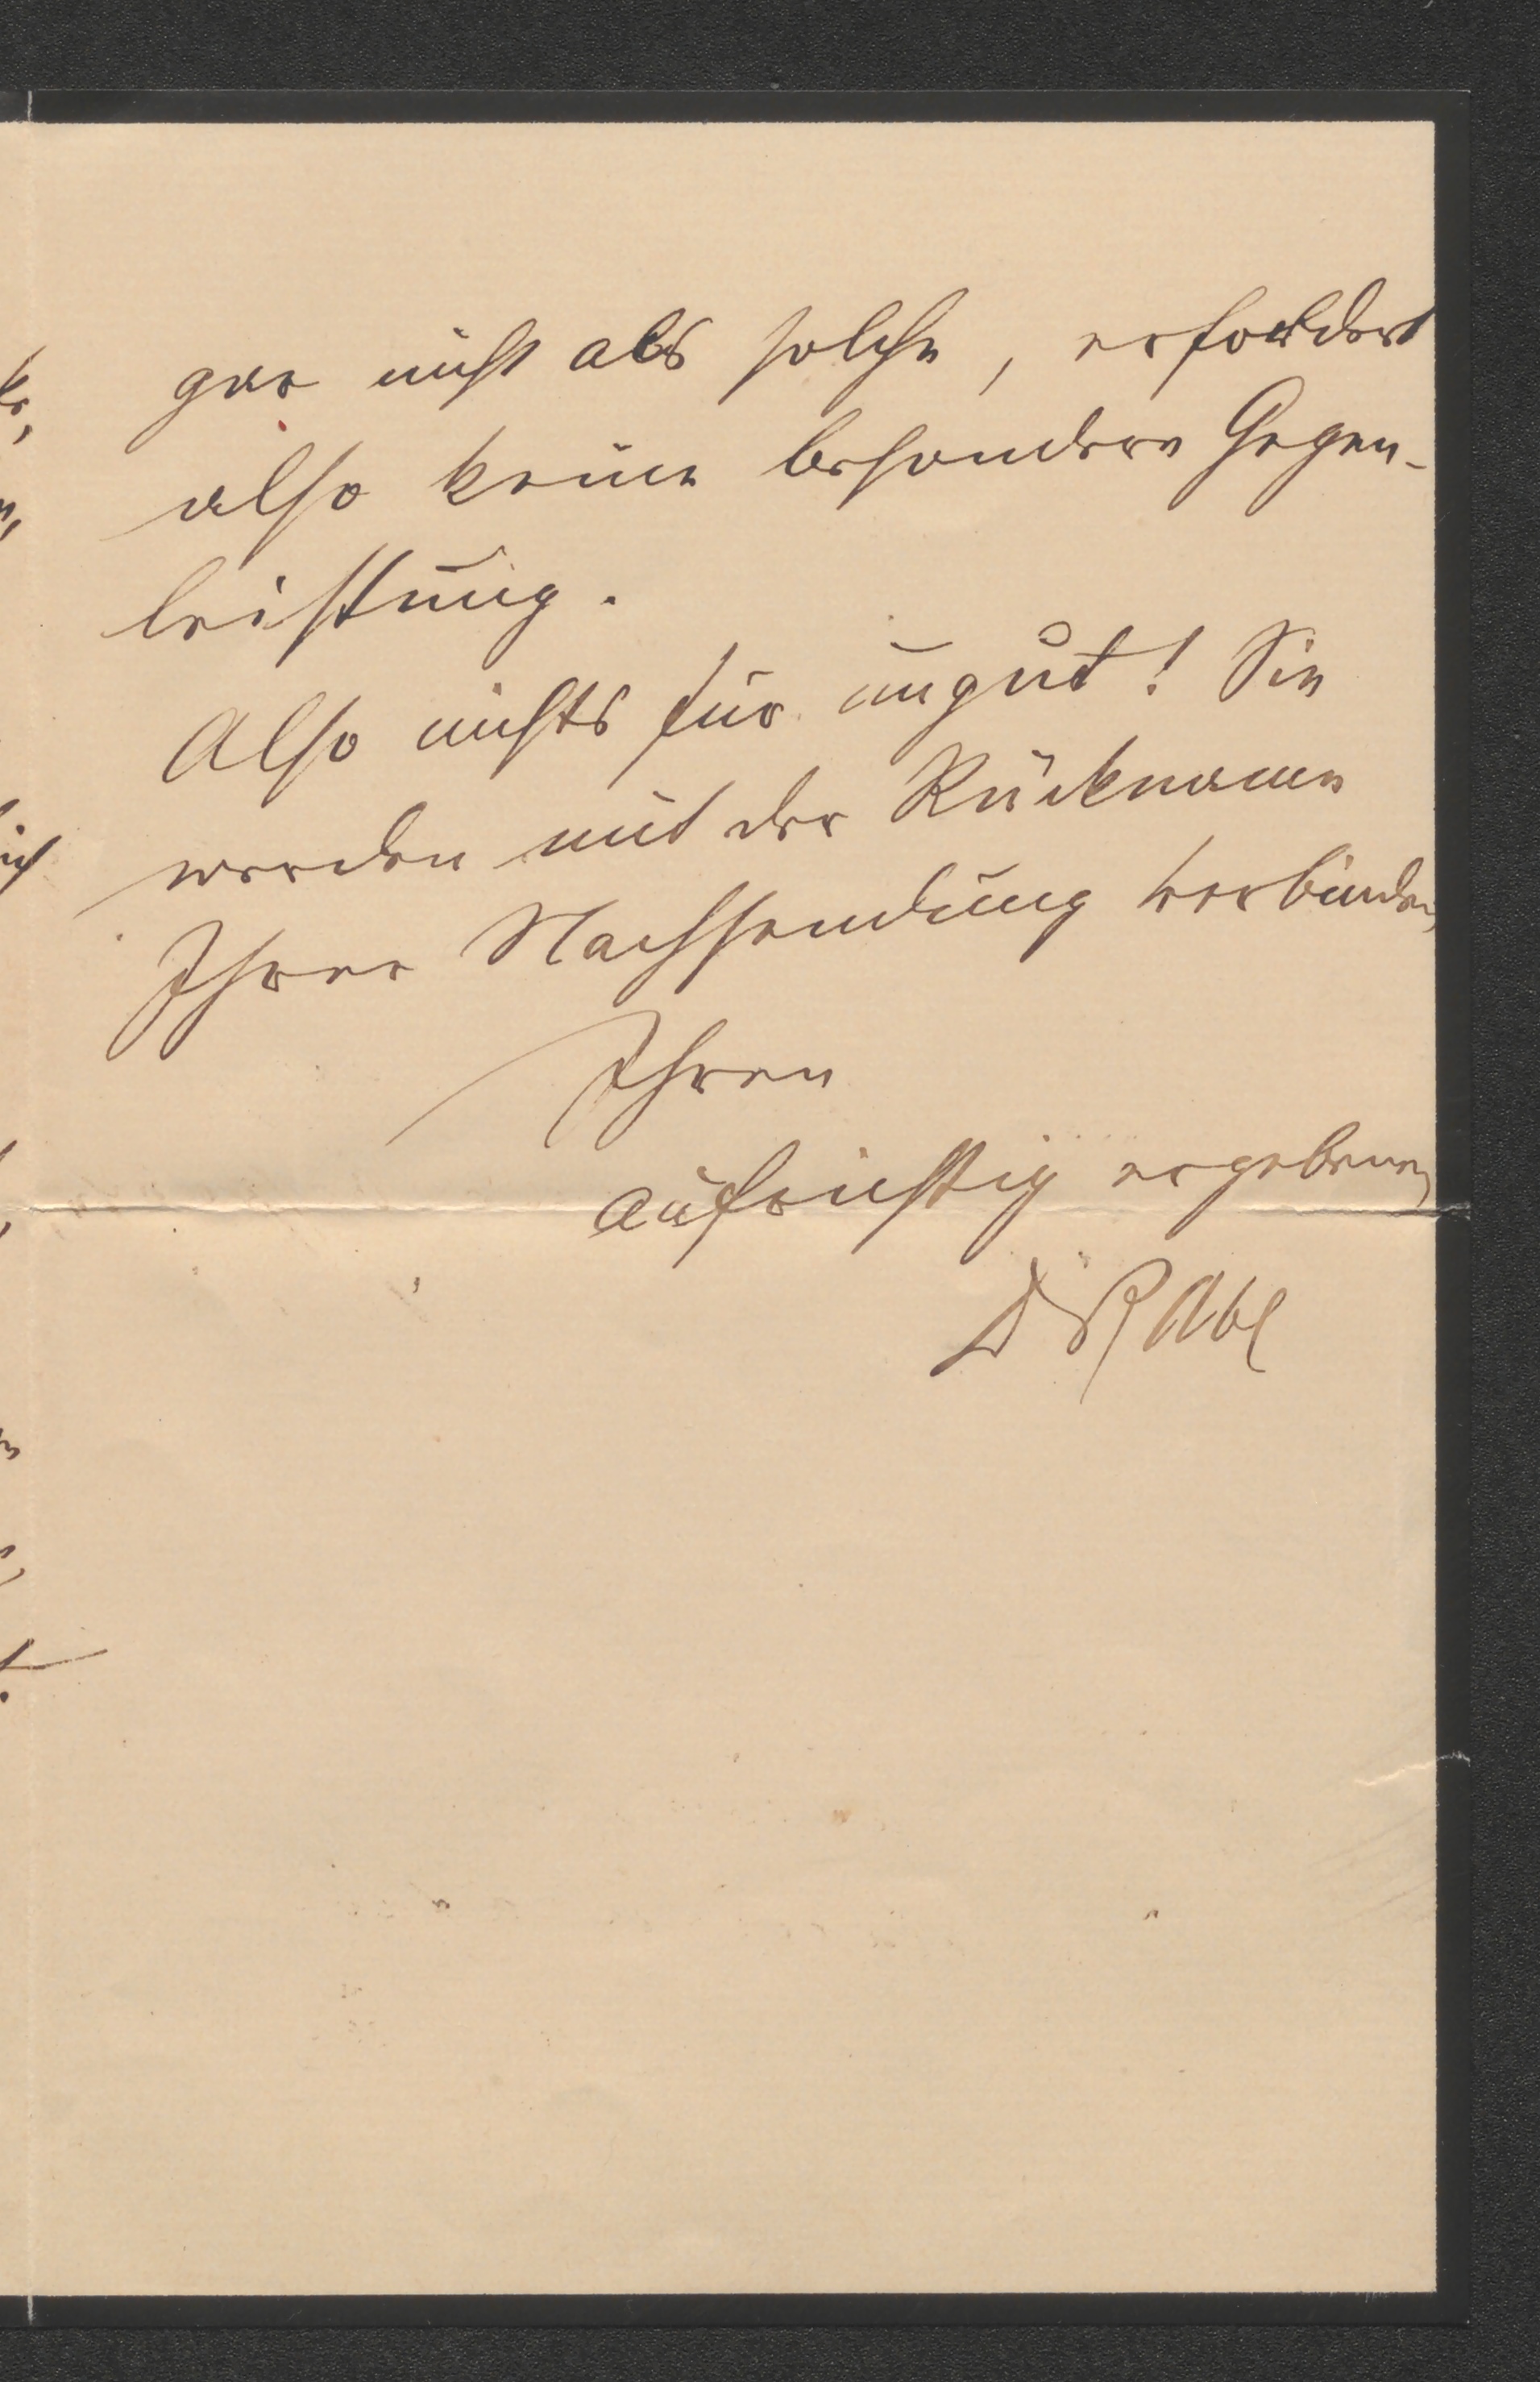 gar nicht als solche, erfordert
also keine besondere Gegen-
leistung.
Also nichts für ungut! Sie
werden mit der Rücknahme
Ihrer Nachsendung verbinden
Ihren
aufrichtig ergebenen
Dr R Abl